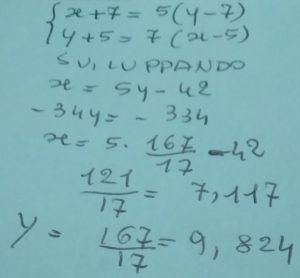 {x+7 = 5(y-7)
y+5 = 7(x-5)
SVILUPPANDO
x = 5y-42
-34y = - 334
x = 5 · 167/17 - 42
121/17 = 7,117
y = 167/17 = 9,824